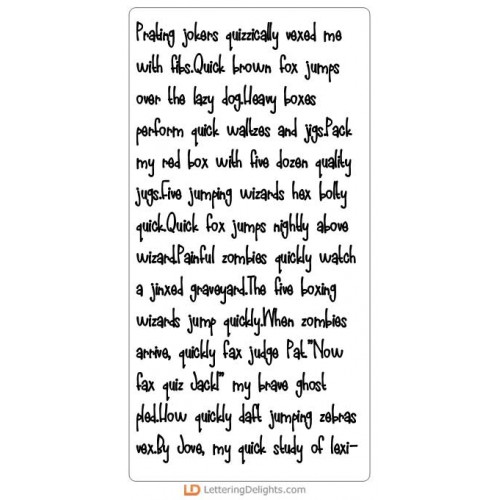 Prating jokers quizzically vexed me
with fibs.Quick brown fox jumps
over the lazy dog.Heavy boxes
perform quick waltzes and jigs.Pack
my red box with five dozen quality
jugs.Five jumping wizards hex bolty
quick.Quick fox jumps nightly above
wizard.Painful zombies quickly watch
a jinxed graveyard.The five boxing
wizards jump quickly.When zombies
arrive, quickly fax judge Pat."Now
fax quiz Jack!" my brave ghost
pled.How quickly daft jumping zebras
vex.By Jove, my quick study of lexi-
LD LetteringDelights.com